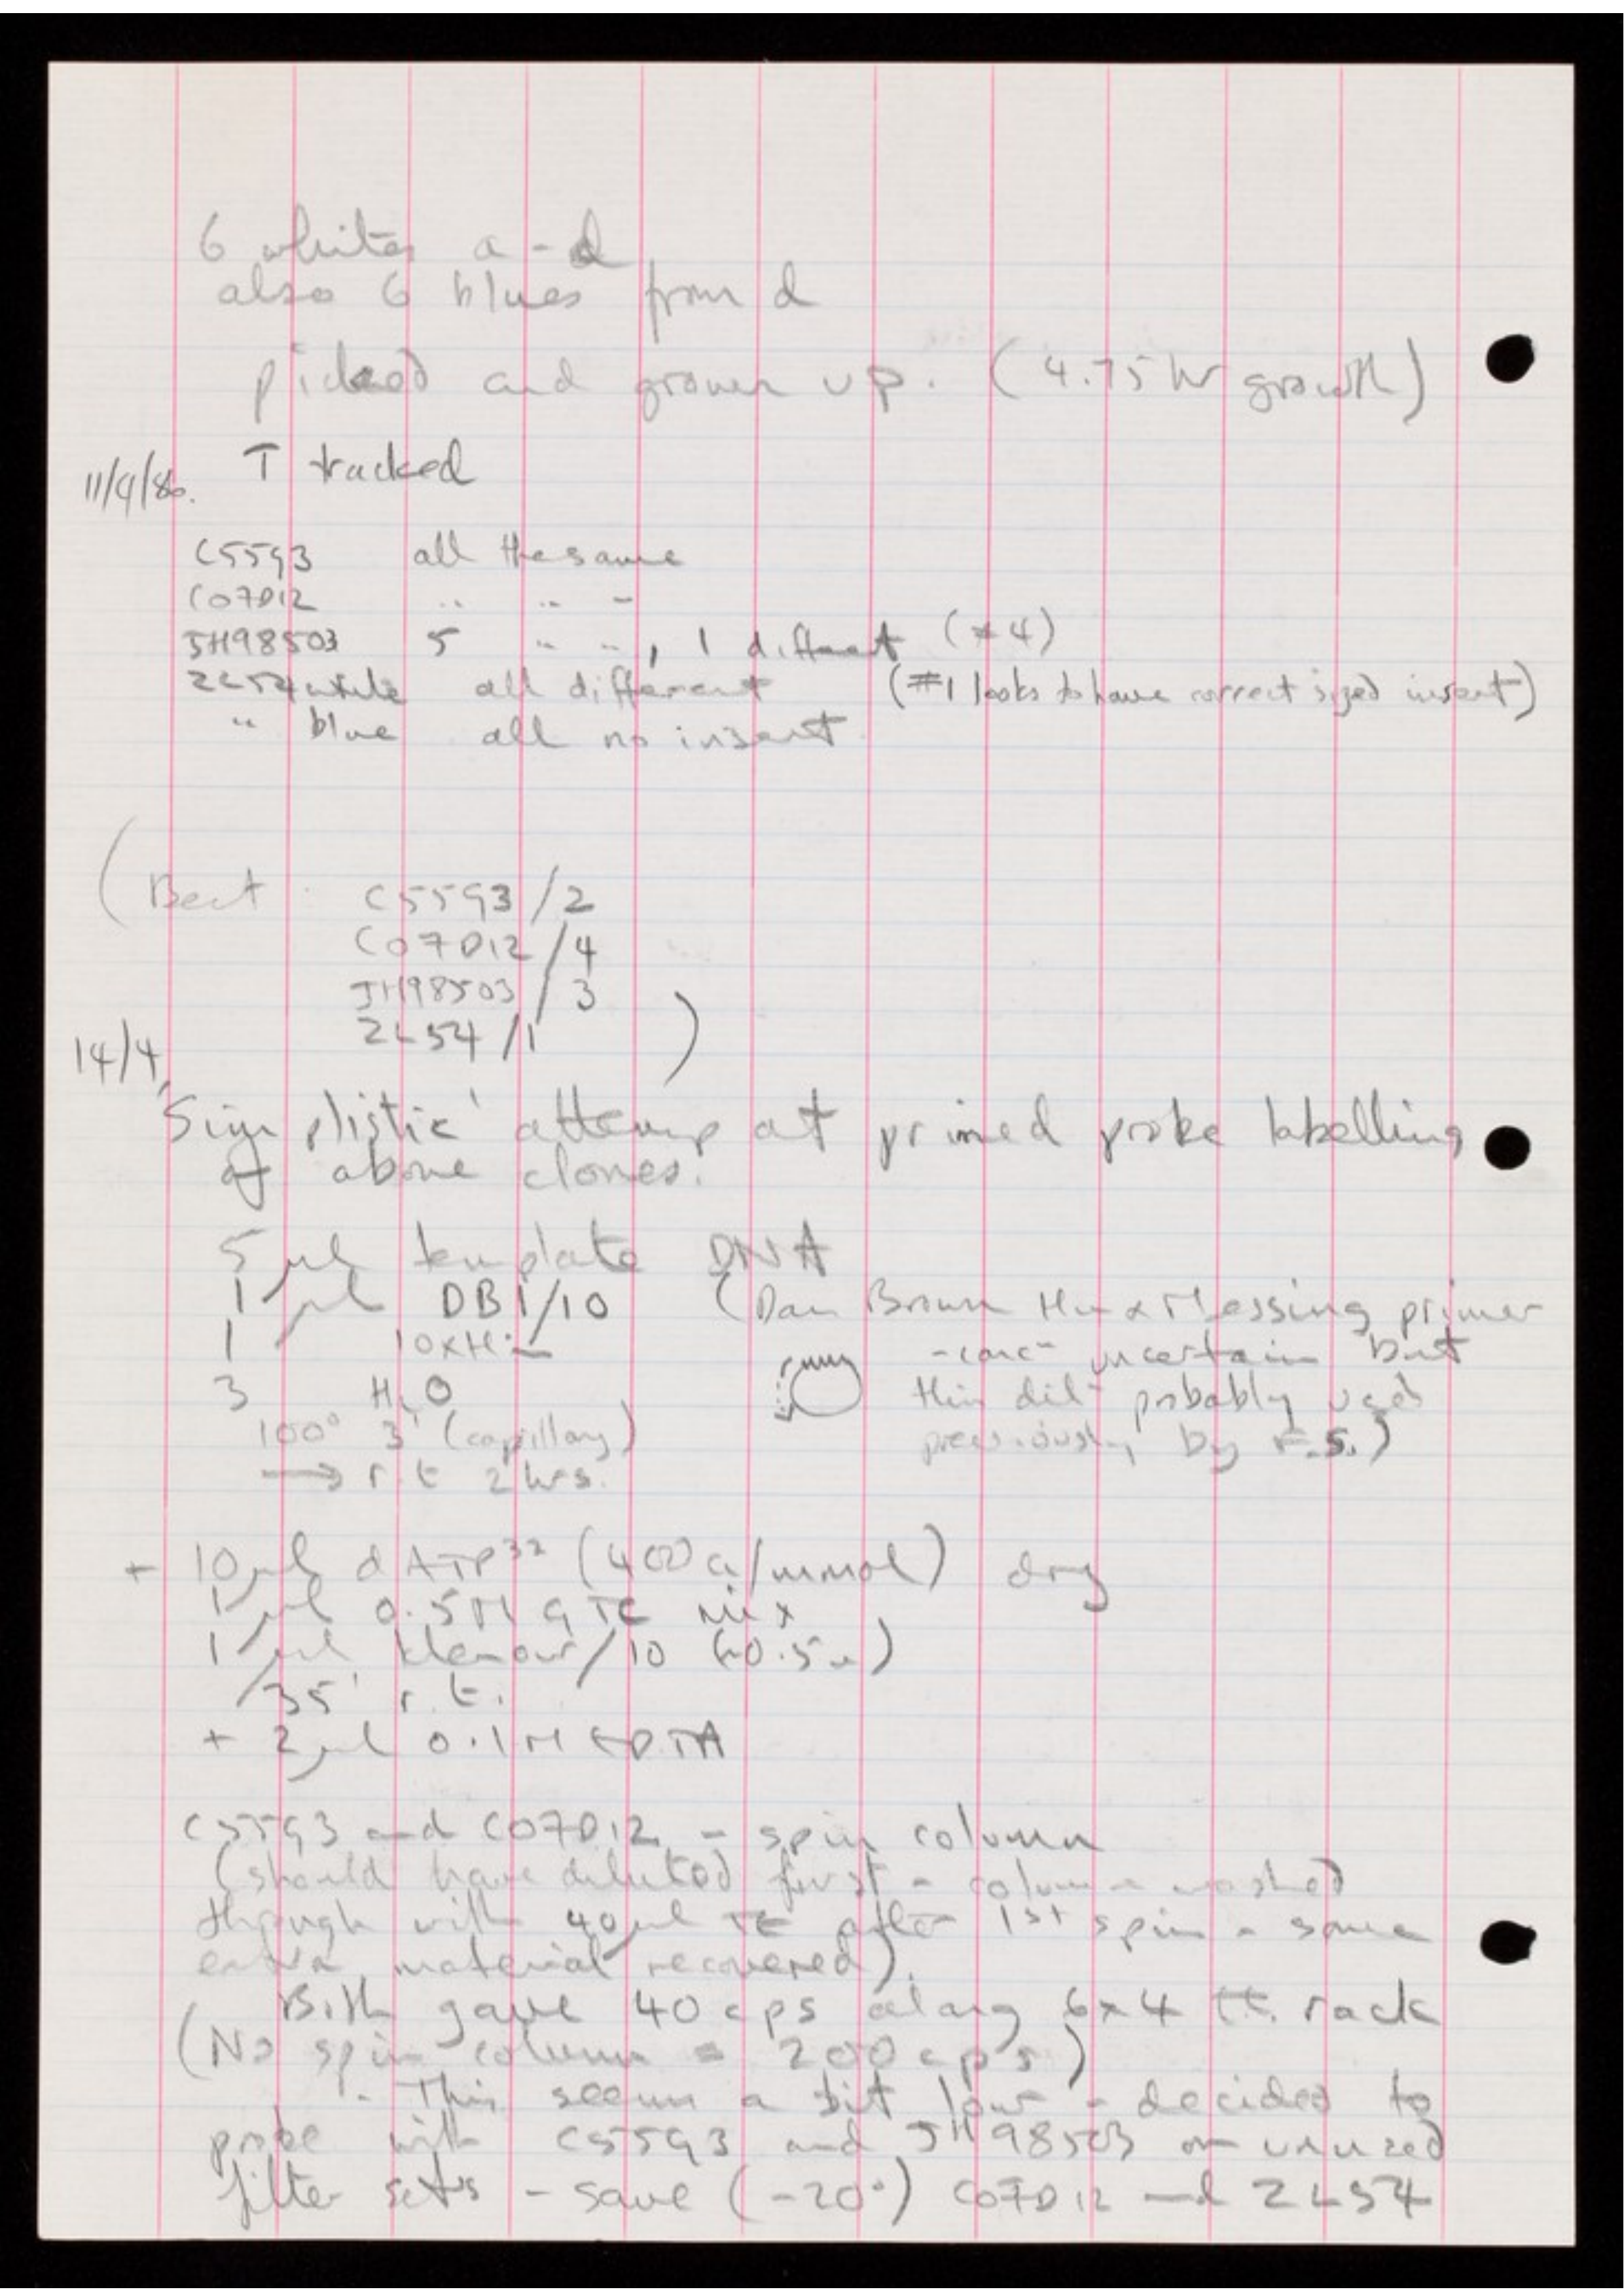 6 whites a - d
also 6 blues from d
picked and grown up. (4.75 hr growth)
11/4/86. T tracked
C55G3 all the same
C07D12 " " "
JH98503 5 " " , 1 different (#4)
ZL54 white all different (#1 looks to have correct sized insert)
" blue all no insert
(Best C55G3/2
C07D12/4
JH98503/3
ZL54/1 )
14/4
'Simplistic' attemp at primed probe labelling
of above clones.
5 µl template DNA
1 µl DB1/10 (Dan Brown Hu & Messing primer
1 10xHin - conc uncertain but
3 H2O this dil probably used
100° 3' (capillary) previously by F.S.)
→ r.t 2 hrs.
+ 10 µl dATP32 (400 Ci/mmol) dry
1 µl 0.5M GTC mix
1 µl klenow/10 (~0.5u)
35' r.t.
+ 2 µl 0.1M EDTA
C55G3 and C07D12 - spin column
(should have diluted first - column washed
through with 40 µl TE after 1st spin - some
extra material recovered).
Both gave 40 cps along 6x4 tt. rack
(No spin column = 200 cps)
- This seems a bit low - decided to
probe with C55G3 and JH98503 on unused
filter sets - save (-20°) C07D12 and ZL54